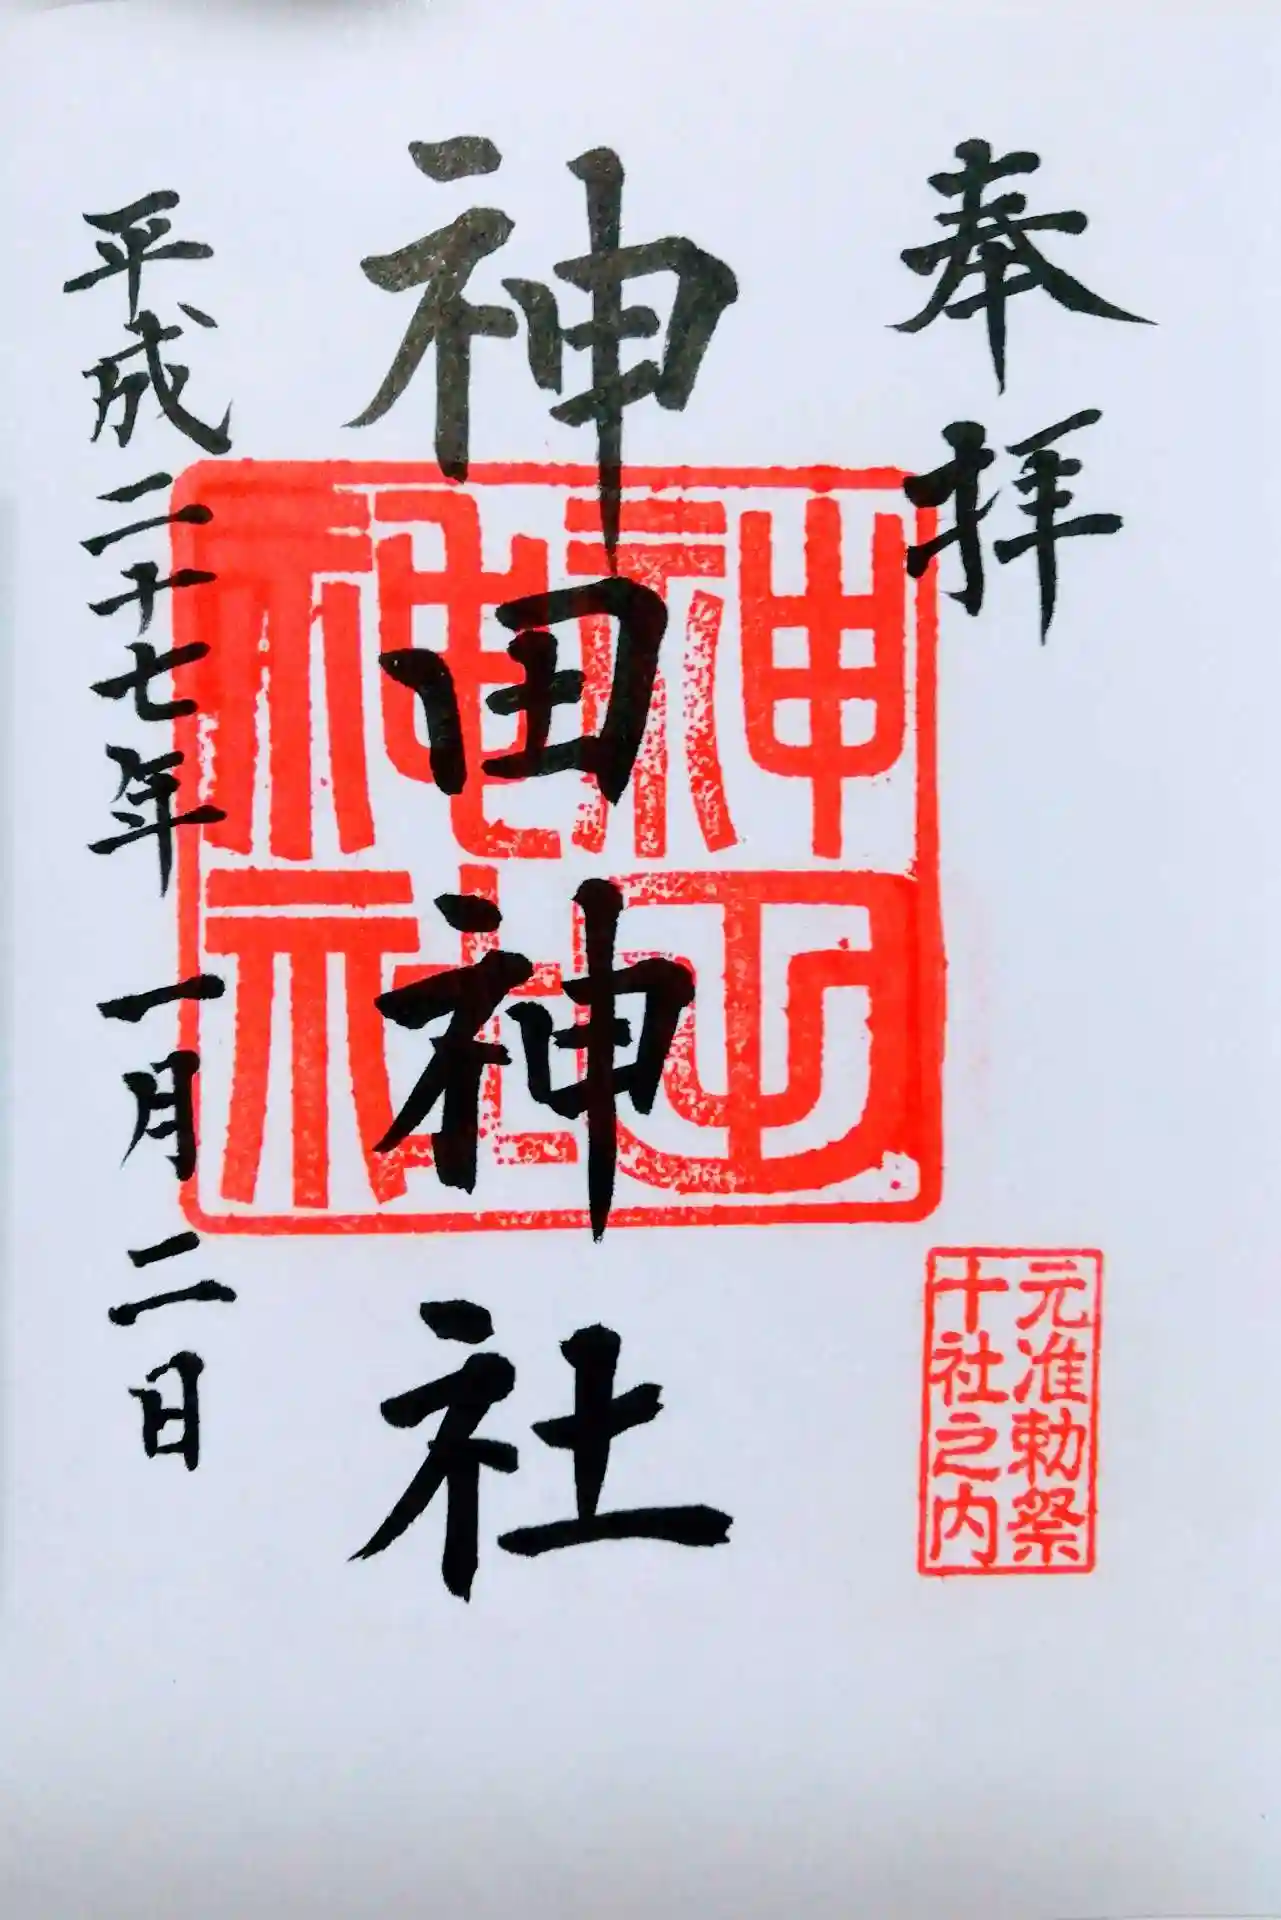 奉拝
元准勅祭
十社之内
神田神社
神田神社
平成二十七年一月二日